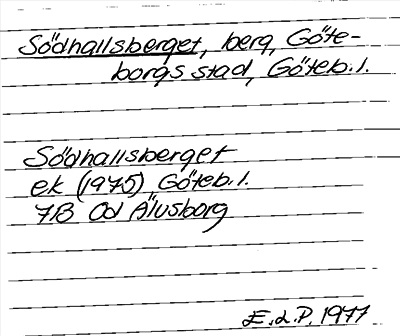 Södhallsberget, berg, Göte-
borgs stad, Göteb. l.
Södhallsberget
ek (1975), Göteb. l.
7B Od Älvsborg
E.L.P. 1977